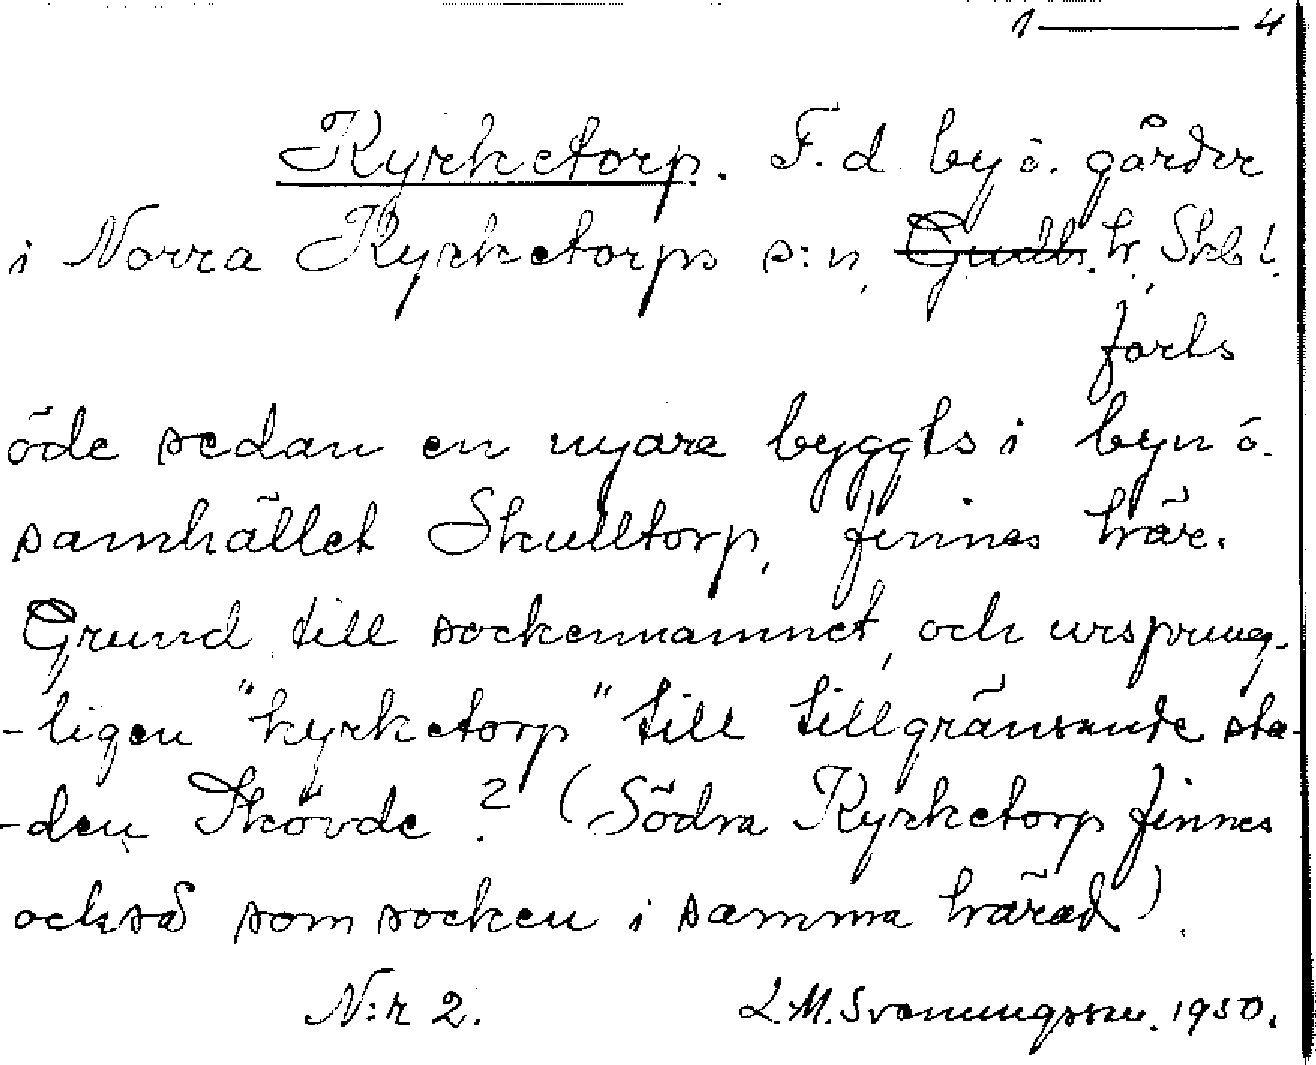 1 — 4
Kyrketorp. F. d. by ö. gårder
i Norra Kyrketorps s:n, Gudh. h., Skbl.
forts
öde sedan en nyare byggts i byn ö.
samhället Skulltorp, finnes här.
Grund till sockennamnet, och ursprung-
-ligen "kyrketorp" till tillgränsande sta-
-den Skövde? (Södra Kyrketorp finnes
också som socken i samma härad).
N:r 2. L. M. Svenungsson. 1950.